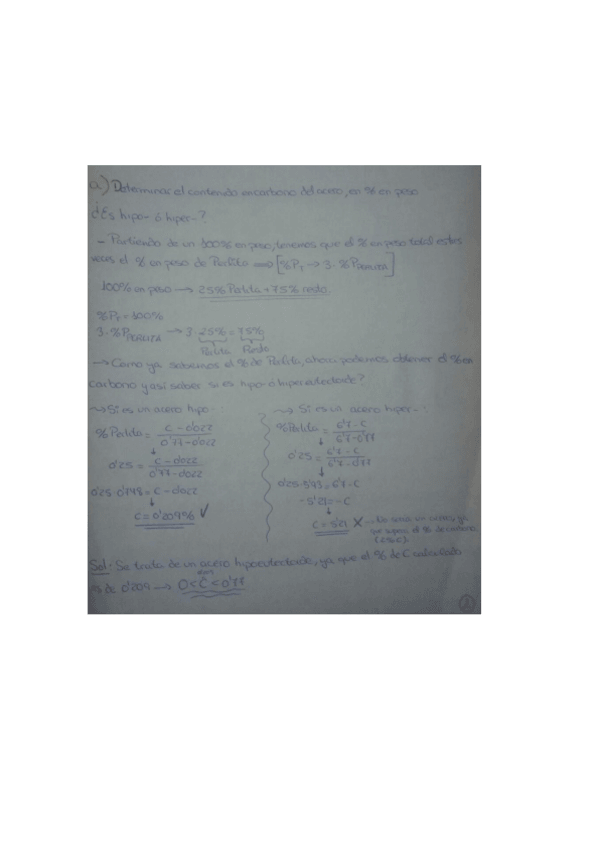 a) Determinar el contenido en carbono del acero, en % en peso
¿Es hipo- ó hiper-?
- Partiendo de un 100% en peso, tenemos que el % en peso total es tres
veces el % en peso de Perlita ⟹ [%P_T → 3·%P_PERLITA]
100% en peso → 25% Perlita + 75% resto.
%P_T = 100%
3·%P_PERLITA → 3·25% = 75%
Perlita Resto
→ Como ya sabemos el % de Perlita, ahora podemos obtener el % en
carbono y así saber si es hipo- ó hipereutectoide?
↝ Si es un acero hipo-:
%Perlita = (C - 0'022) / (0'77 - 0'022)
↓
0'25 = (C - 0'022) / (0'77 - 0'022)
0'25·0'748 = C - 0'022
↓
C = 0'209% ✓
↝ Si es un acero hiper-:
%Perlita = (6'7 - C) / (6'7 - 0'77)
↓
0'25 = (6'7 - C) / (6'7 - 0'77)
↓
0'25·5'93 = 6'7 - C
-5'21 = -C
↓
C = 5'21 ✗ → No un acero, ya
que supera el % de carbono
Sol: Se trata de un acero hipoeutectoide, ya que el % de C calculado
es de 0'209 → 0 < C < 0'77
2